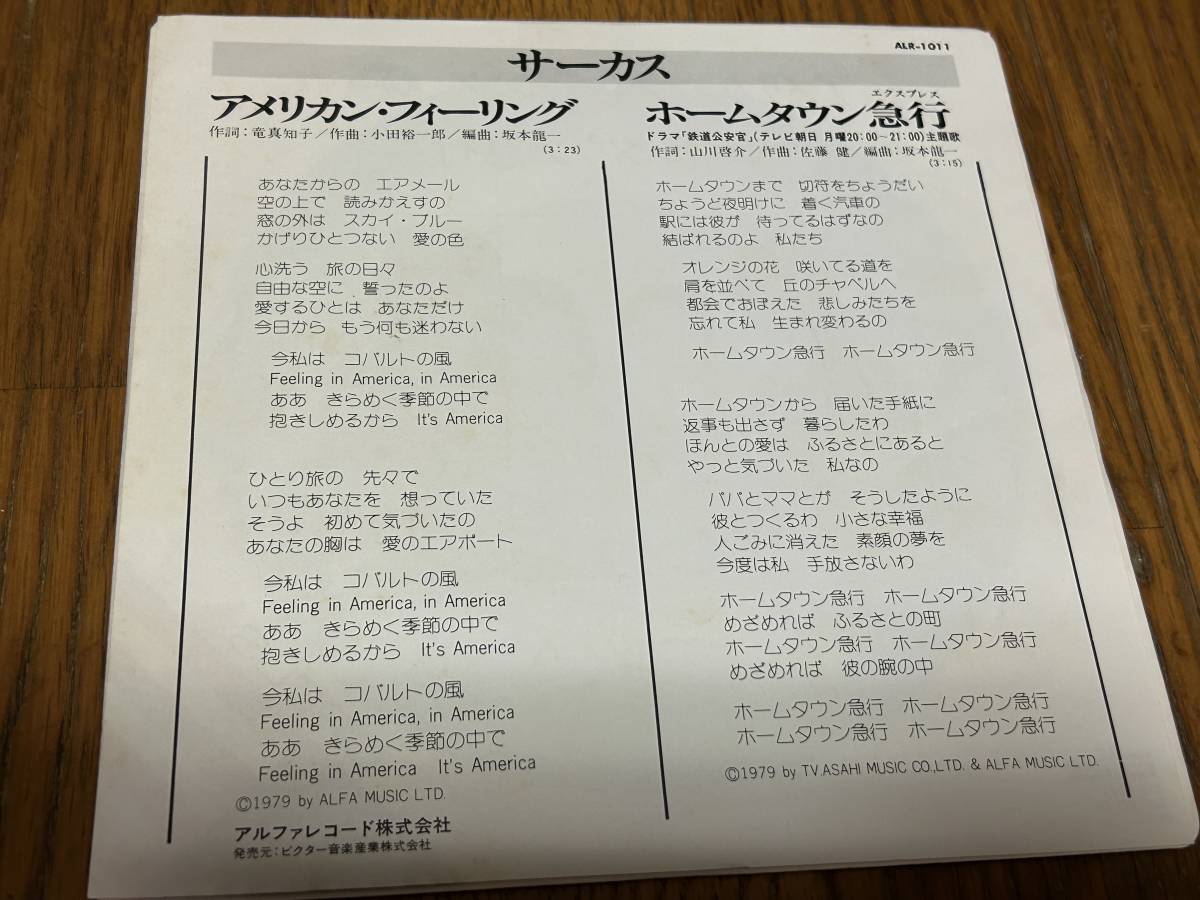 ALR-1011
サーカス
アメリカン・フィーリング
作詞：竜真知子／作曲：小田裕一郎／編曲：坂本龍一
(3：23)
あなたからの　エアメール
空の上で　読みかえすの
窓の外は　スカイ・ブルー
かげりひとつない　愛の色
心洗う　旅の日々
自由な空に　誓ったのよ
愛するひとは　あなただけ
今日から　もう何も迷わない
今私は　コバルトの風
Feeling in America, in America
ああ　きらめく季節の中で
抱きしめるから　It's America
ひとり旅の　先々で
いつもあなたを　想っていた
そうよ　初めて気づいたの
あなたの胸は　愛のエアポート
今私は　コバルトの風
Feeling in America, in America
ああ　きらめく季節の中で
抱きしめるから　It's America
今私は　コバルトの風
Feeling in America, in America
ああ　きらめく季節の中で
Feeling in America　It's America
©1979 by ALFA MUSIC LTD.
アルファレコード株式会社
発売元：ビクター音楽産業株式会社
エクスプレス
ホームタウン急行
ドラマ「鉄道公安官」(テレビ朝日 月曜20：00〜21：00)主題歌
作詞：山川啓介／作曲：佐藤 健／編曲：坂本龍一
(3：15)
ホームタウンまで　切符をちょうだい
ちょうど夜明けに　着く汽車の
駅には彼が　待ってるはずなの
結ばれるのよ　私たち
オレンジの花　咲いてる道を
肩を並べて　丘のチャペルへ
都会でおぼえた　悲しみたちを
忘れて私　生まれ変わるの
ホームタウン急行　ホームタウン急行
ホームタウンから　届いた手紙に
返事も出さず　暮らしたわ
ほんとの愛は　ふるさとにあると
やっと気づいた　私なの
パパとママとが　そうしたように
彼とつくるわ　小さな幸福
人ごみに消えた　素顔の夢を
今度は私　手放さないわ
ホームタウン急行　ホームタウン急行
めざめれば　ふるさとの町
ホームタウン急行　ホームタウン急行
めざめれば　彼の腕の中
ホームタウン急行　ホームタウン急行
ホームタウン急行　ホームタウン急行
©1979 by TV.ASAHI MUSIC CO.,LTD. & ALFA MUSIC LTD.